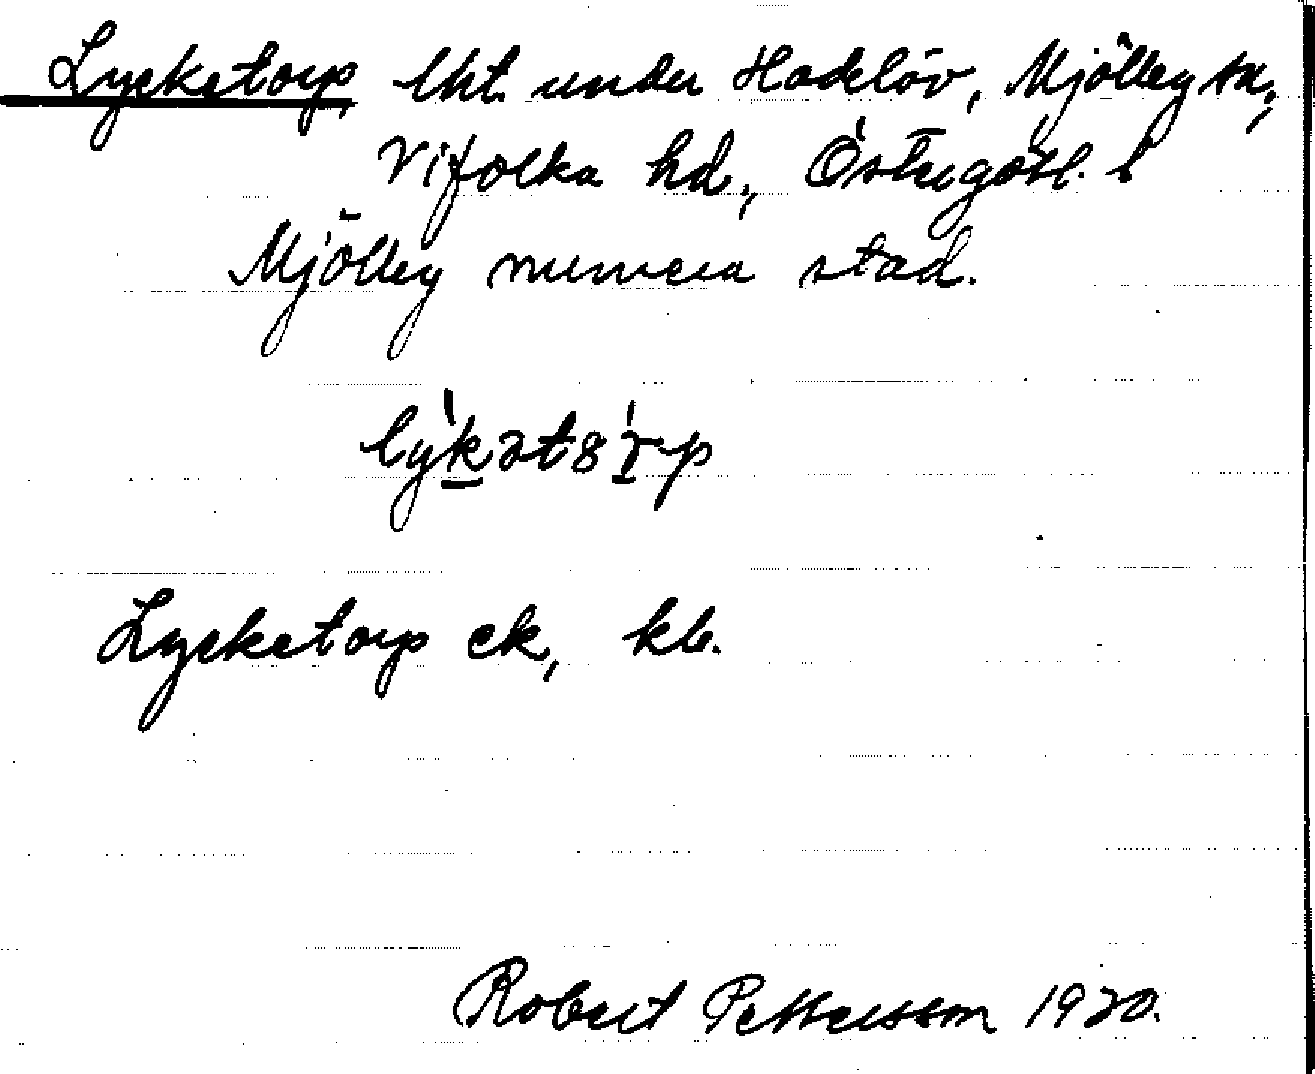 Lycketorp, lht. under Hadelöv, Mjölby sn,
Vifolka hd, Östergötl. l
Mjölby numera stad.
lýkəts ɪ́p
Lycketorp ek, kb.
Robert Pettersson 1920.